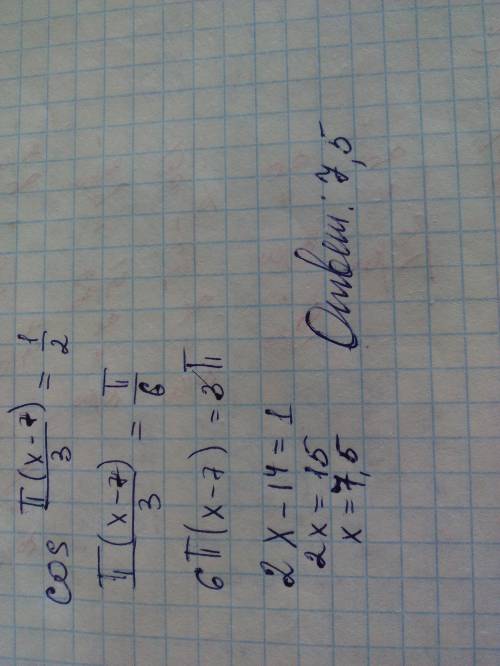 cos π(x-7)/3 = 1/2
π(x-7)/3 = π/6
6π(x-7) = 3π
2x-14=1
2x=15
x=7,5
Ответ: 7,5